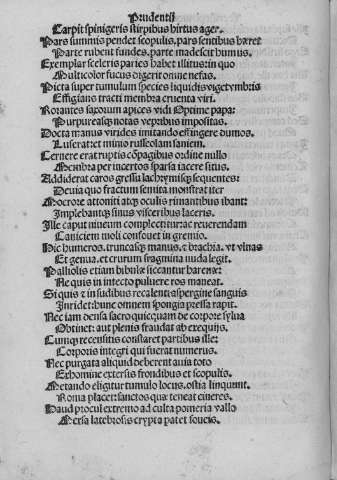 Prudentij
Carpit spinigeris stirpibus hirtus ager.
Pars summis pendet scopulis, pars sentibus hæret
Parte rubent fundes, parte madescit humus.
Exemplar sceleris paries habet illitus: in quo
Multicolor fucus digerit omne nefas.
Picta super tumulum species liquidis viget vmbris
Effigians tracti membra cruenta viri.
Rorantes saxorum apices vidi Optime papa:
Purpureasq; notas vepribus impositas.
Docta manus virides imitando effingere dumos.
Luserat: et minio russeolam saniem.
Cernere erat ruptis cõpagibus ordine nullo
Membra per incertos sparsa iacere situs.
Addiderat caros gressu lachrymisq; sequentes:
Deuia quo fractum semita monstrat iter
Moerore attoniti atq; oculis rimantibus ibant:
Implebantq; sinus visceribus laceris.
Ille caput niueum complectitur: ac reuerendam
Caniciem moli confouet in gremio.
Hic humeros, truncasq; manus, & brachia, vt vlnas
Et genua, et crurum fragmina nuda legit.
Palliolis etiam bibulæ siccantur harenæ:
Ne quis in infecto puluere ros maneat.
Si quis & in sudibus recalenti aspergine sanguis
Insidet: hunc omnem spongia pressa rapit.
Nec iam densa sacro quicquam de corpore sylua
Obtinet: aut plenis fraudat ab exequijs.
Cumq; recensitis constaret partibus ille:
Corporis integri qui fuerat numerus.
Nec purgata aliquid deberent auia toto
Ex homine extersis frondibus et scopulis.
Metando eligitur tumulo locus. ostia linquunt.
Roma placet: sanctos quæ teneat cineres.
Haud procul extremo ad culta pomeria vallo
Mersa latebrosis crypta patet foueis.